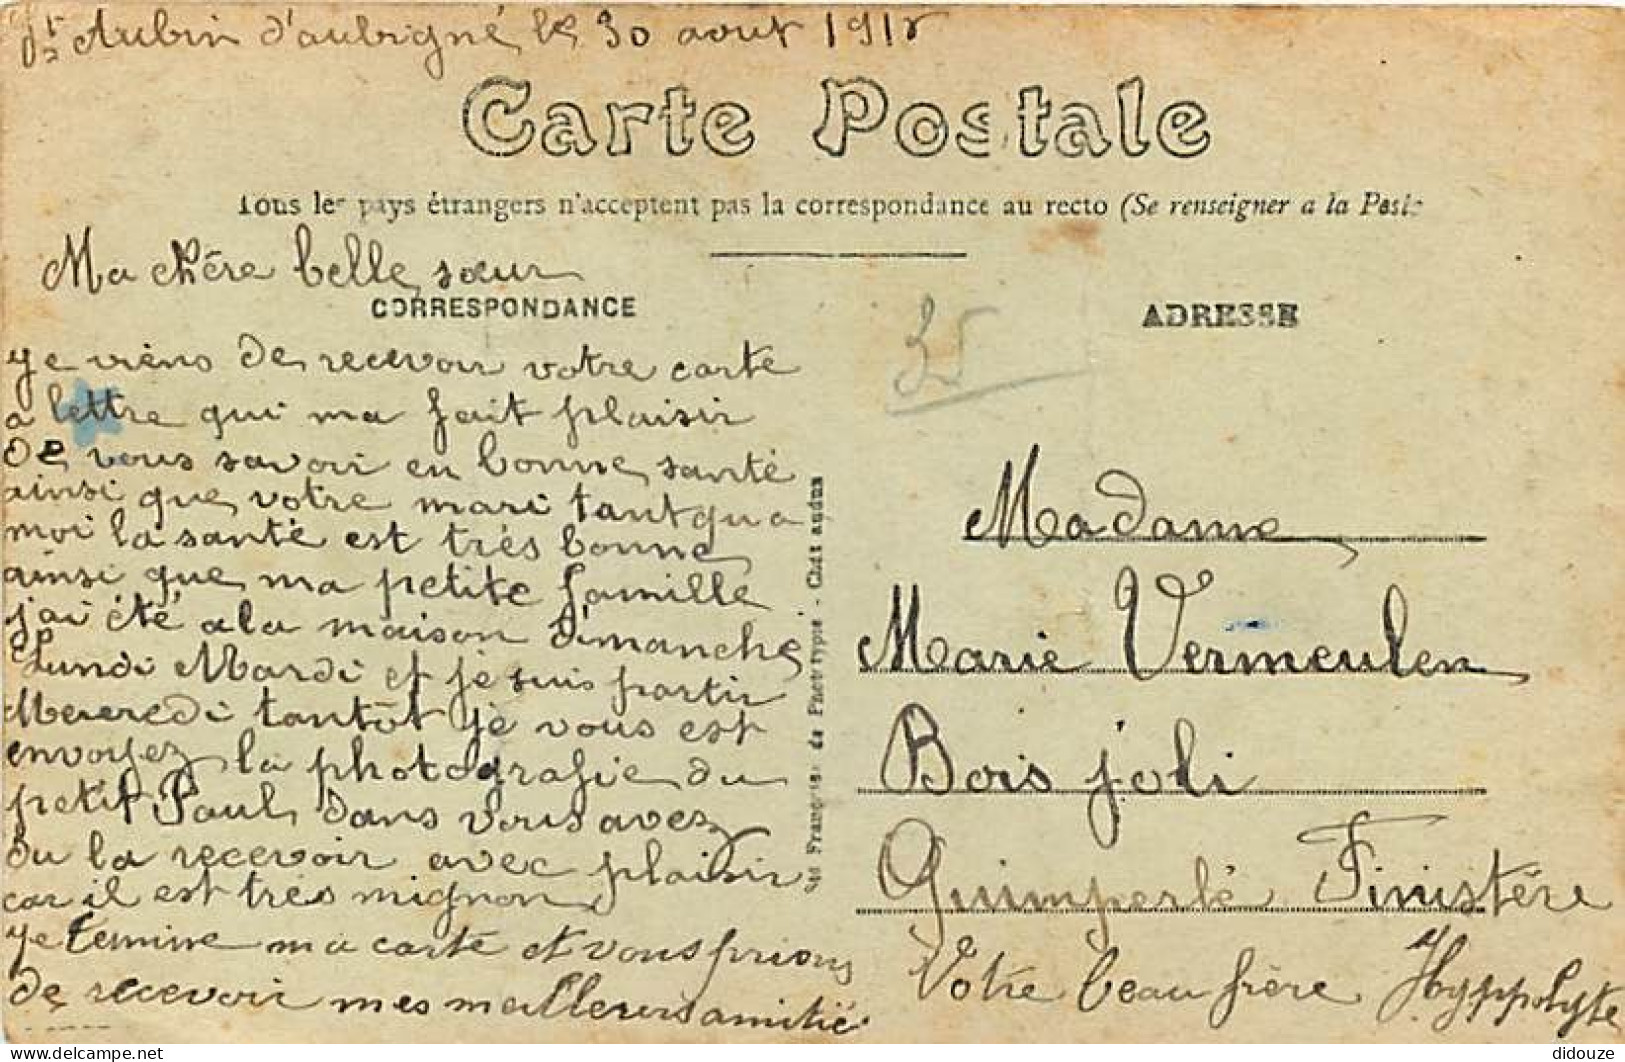 St Aubin d'aubigné le 30 aout 1918
Carte Postale
Tous les pays étrangers n'acceptent pas la correspondance au recto (Se renseigner a la Poste
Ma chère belle sœur
CORRESPONDANCE
Je viens de recevoir votre carte
a lettre qui ma fait plaisir
de vous savoir en bonne santé
ainsi que votre mari tant qu a
moi la santé est très bonne
ainsi que ma petite famille
j'ai été a la maison Dimanche
Lundi Mardi et je suis partir
Mercredi tantôt je vous est
envoyez la photografie du
petit Paul dans vous avez
du la recevoir avec plaisir
car il est très mignon
Je temine ma carte et vous prions
de recevoir mes meilleurs amitié
de Phototypie - Chât audun
35
ADRESSE
Madame
Marie Vermeulen
Bois joli
Quimperlé Finistére
Votre beau frère Hyppolyte
didouze
© delcampe.net